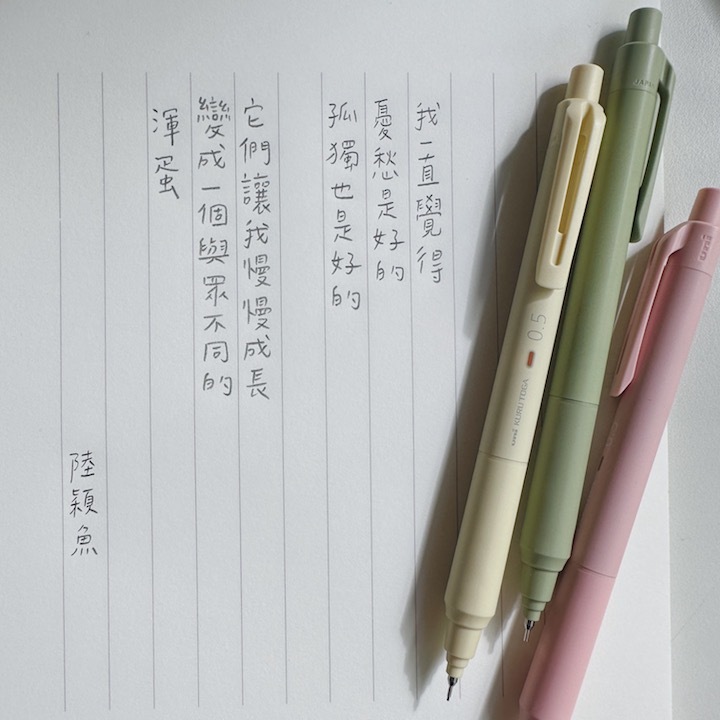 我一直覺得
憂愁是好的
孤獨也是好的
它們讓我慢慢成長
變成一個與眾不同的
渾蛋
陸穎魚
uni KURU TOGA 0.5
JAPAN
uni